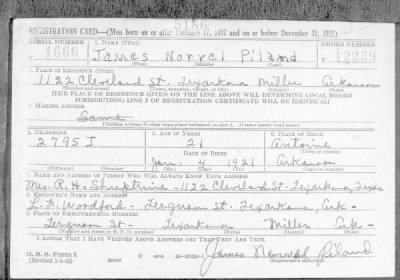 5186
REGISTRATION CARD—(Men born on or after February 17, 1897 and on or before December 31, 1921)
SERIAL NUMBER 1. NAME (Print) ORDER NUMBER
1666 James Norvel Piland 12239
(First) (Middle) (Last)
2. PLACE OF RESIDENCE (Print)
1122 Cleveland St. Texarkana Miller Arkansas
(Number and street) (Town, township, village, or city) (County) (State)
[THE PLACE OF RESIDENCE GIVEN ON THE LINE ABOVE WILL DETERMINE LOCAL BOARD
JURISDICTION; LINE 2 OF REGISTRATION CERTIFICATE WILL BE IDENTICAL]
3. MAILING ADDRESS
Same
[Mailing address if other than place indicated on line 2. If same insert word same]
4. TELEPHONE 5. AGE IN YEARS 6. PLACE OF BIRTH
2795 J 21 Antoine
DATE OF BIRTH (Town or county)
Jan. 4 1921 Arkansas
(Exchange) (Number) (Mo.) (Day) (Yr.) (State or country)
7. NAME AND ADDRESS OF PERSON WHO WILL ALWAYS KNOW YOUR ADDRESS
Mrs. R. H. Shuptrine - 1122 Cleveland St. Texarkana, Texas
8. EMPLOYER'S NAME AND ADDRESS
L. F. Woodford - Ferguson St. Texarkana, Ark -
9. PLACE OF EMPLOYMENT OR BUSINESS
Ferguson St - Texarkana Miller Ark -
(Number and street or R. F. D. number) (Town) (County) (State)
I AFFIRM THAT I HAVE VERIFIED ABOVE ANSWERS AND THAT THEY ARE TRUE.
D. S. S. Form 1
(Revised 1-1-42) (over) James Norvel Piland
(Registrant's signature)